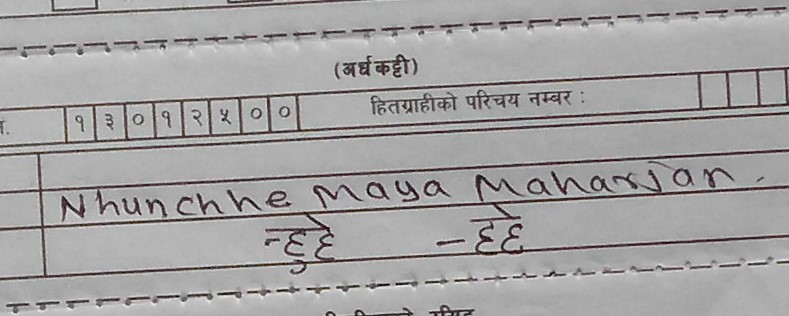 (अर्धकट्टी)
१३०१२५०० हितग्राहीको परिचय नम्बर :
Nhunchhe Maya Maharjan.